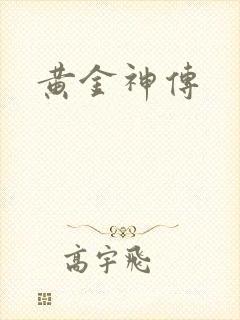 黄金神傳
高宇飛